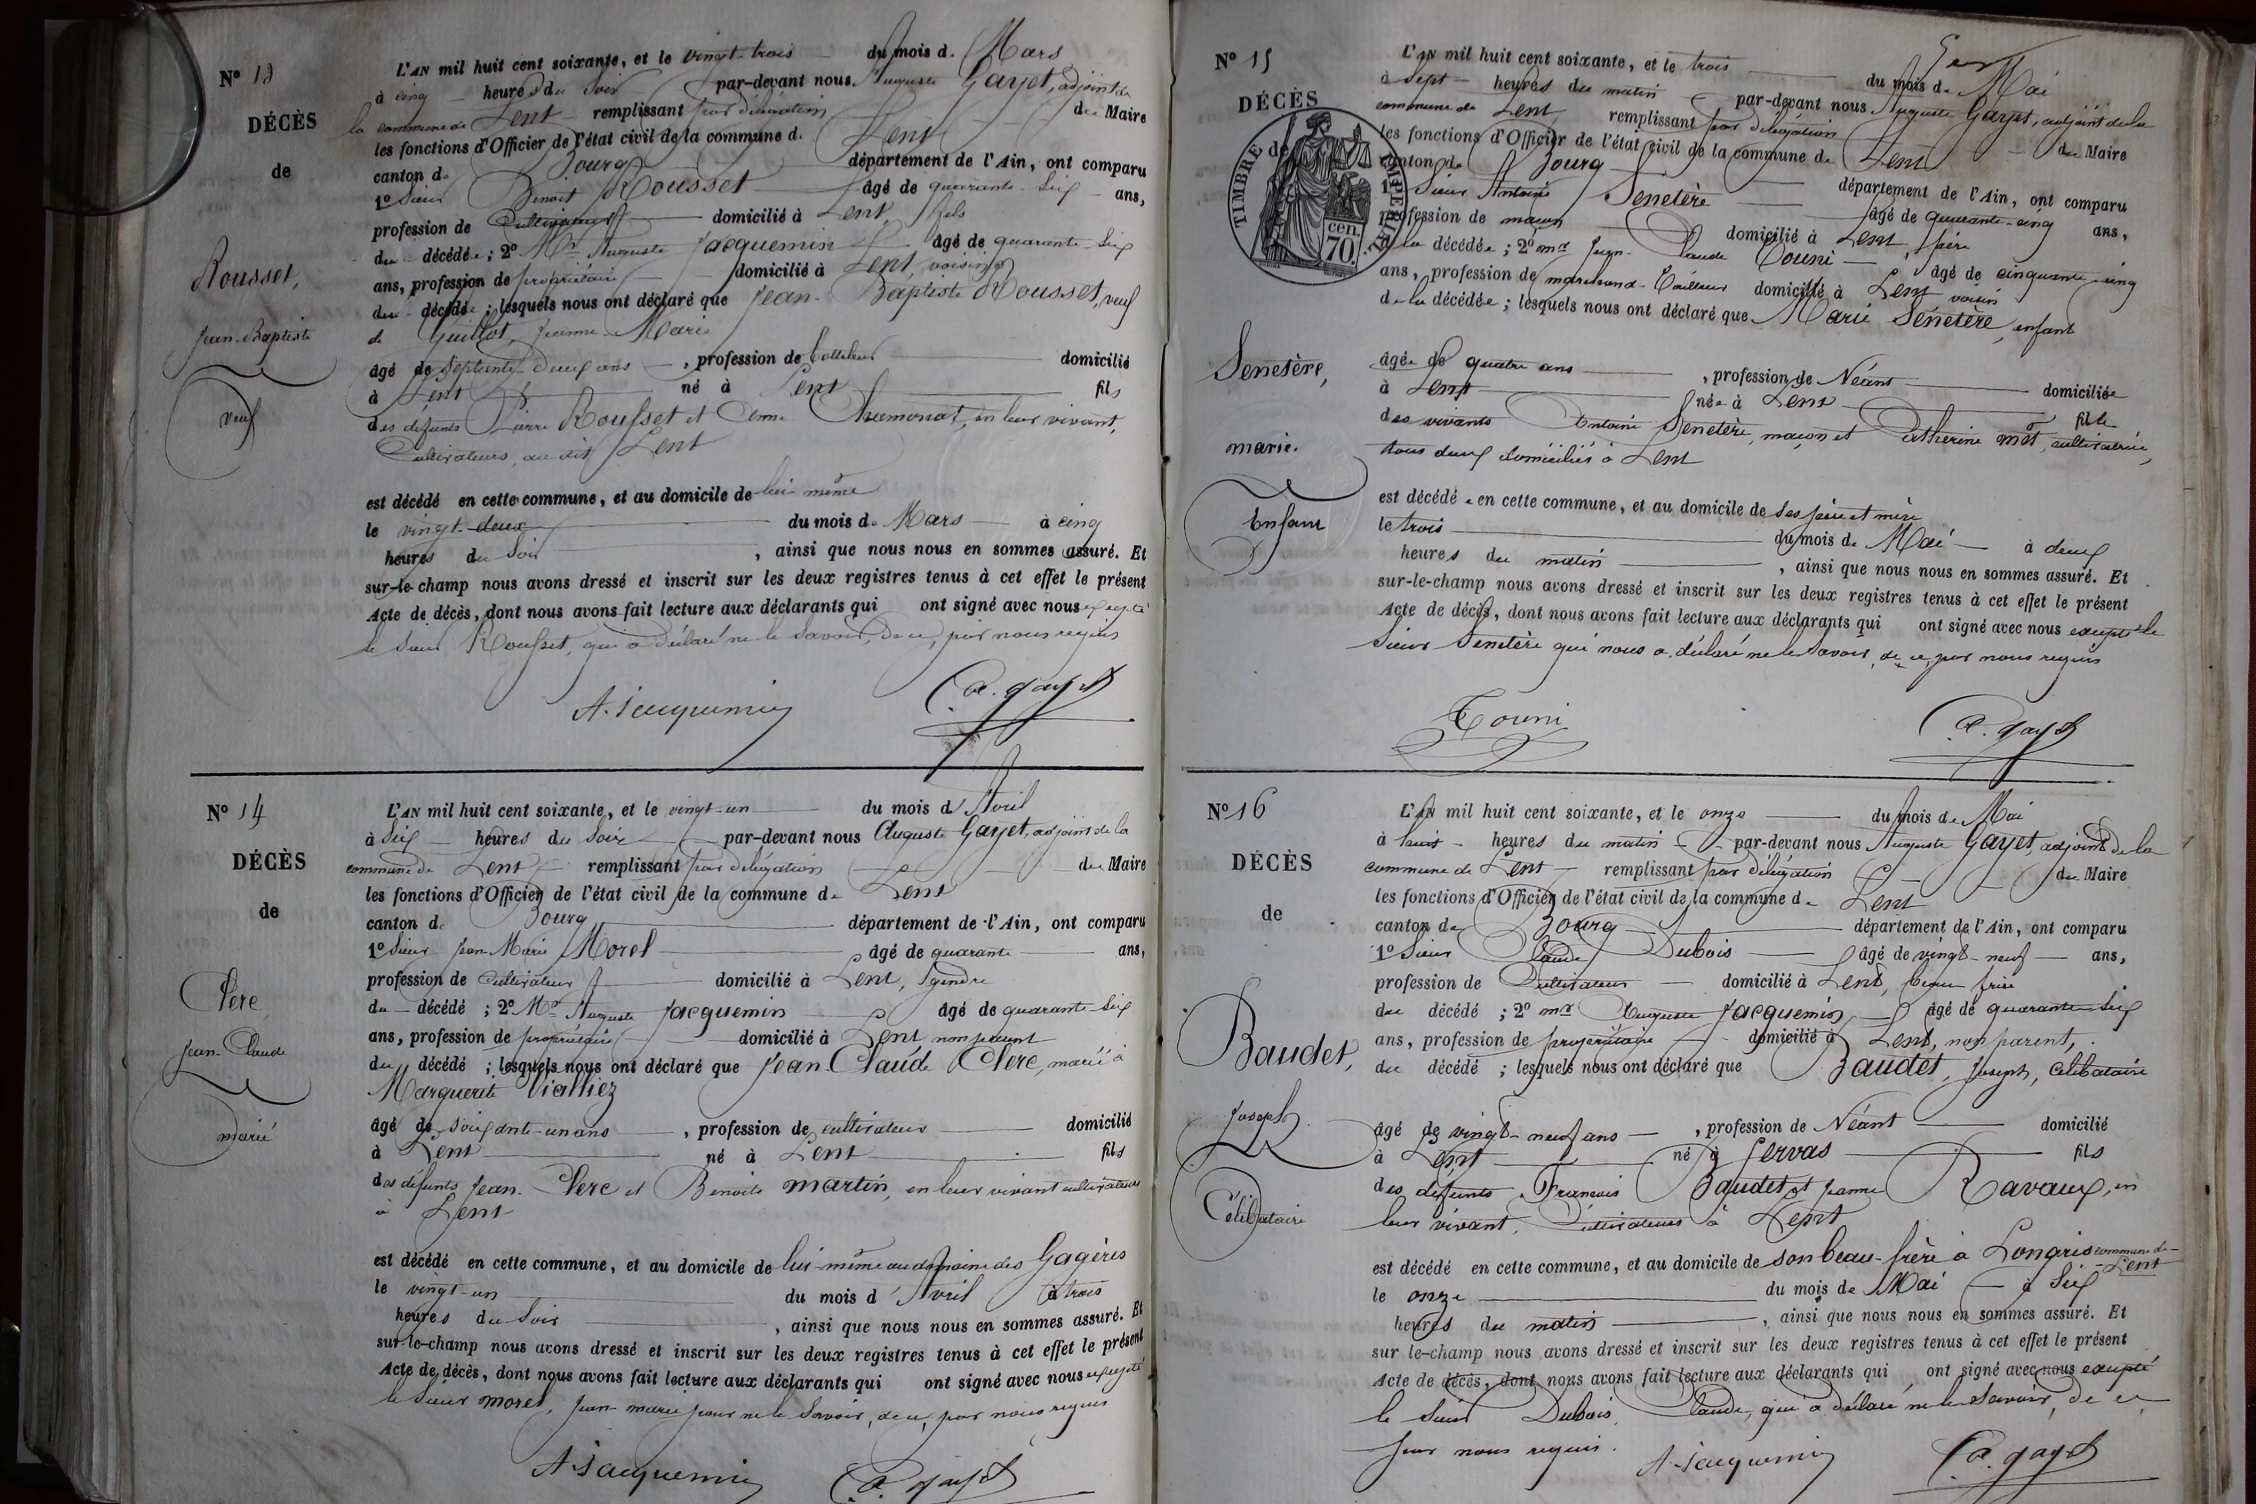 N° 13
DÉCÈS
de
Rousset,
Jean-Baptiste
veuf
L'AN mil huit cent soixante, et le vingt-trois du mois de Mars
à cinq heures du soir par-devant nous Auguste Gayet, adjoint de
la commune de Lent remplissant par délégation du Maire
les fonctions d'Officier de l'état civil de la commune de Lent
canton de Bourg département de l'Ain, ont comparu
1° Sieur Benoit Rousset âgé de quarante-six ans,
profession de Cultivateur domicilié à Lent, fils
du décédé ; 2° Mr Auguste Jacquemin âgé de quarante-six
ans, profession de propriétaire domicilié à Lent, voisin
du décédé ; lesquels nous ont déclaré que Jean-Baptiste Rousset, veuf
de Guillot, Jeanne-Marie
âgé de septante-deux ans, profession de domicilié
à Lent né à Lent fils
des défunts Pierre Rousset et Anne Chamonat, en leur vivant,
Cultivateurs, au dit Lent
est décédé en cette commune, et au domicile de lui-même
le vingt-deux du mois de Mars à cinq
heures du soir, ainsi que nous nous en sommes assuré. Et
sur-le-champ nous avons dressé et inscrit sur les deux registres tenus à cet effet le présent
Acte de décès, dont nous avons fait lecture aux déclarants qui ont signé avec nous excepté
le sieur Rousset, qui a déclaré ne le savoir, de ce, par nous requis
A. Jacquemin a. gayet
N° 14
DÉCÈS
de
Clerc,
Jean-Claude
marié
L'AN mil huit cent soixante, et le vingt-un du mois d'Avril
à six heures du soir par-devant nous Auguste Gayet, adjoint de la
commune de Lent remplissant par délégation du Maire
les fonctions d'Officier de l'état civil de la commune de Lent
canton de Bourg département de l'Ain, ont comparu
1° Sieur Jean-Marie Morel âgé de quarante ans,
profession de cultivateur domicilié à Lent, gendre
du décédé ; 2° Mr Auguste Jacquemin âgé de quarante-six
ans, profession de propriétaire domicilié à Lent non parent
du décédé ; lesquels nous ont déclaré que Jean-Claude Clerc, marié à
Marguerite Vialliez
âgé de soixante-un ans, profession de cultivateur domicilié
à Lent né à Lent fils
des défunts Jean Clerc et Benoite martin, en leur vivant cultivateurs
à Lent
est décédé en cette commune, et au domicile de lui-même au domaine des Gagères
le vingt-un du mois d'Avril à trois
heures du soir, ainsi que nous nous en sommes assuré. Et
sur-le-champ nous avons dressé et inscrit sur les deux registres tenus à cet effet le présent
Acte de décès, dont nous avons fait lecture aux déclarants qui ont signé avec nous excepté
le sieur morel, jean-marie pour ne le savoir, de ce, par nous requis
A. Jacquemin a. gayet
N° 15
DÉCÈS
de
TIMBRE IMPERIAL
70 cen.
Senetère,
marie.
Enfant
L'AN mil huit cent soixante, et le trois du mois de Mai
à sept heures du matin par-devant nous Auguste Gayet, adjoint de la
commune de Lent remplissant par délégation du Maire
les fonctions d'Officier de l'état civil de la commune de Lent
canton de Bourg département de l'Ain, ont comparu
1° Sieur Antoine Senetère âgé de quarante-cinq ans,
profession de maçon domicilié à Lent, père
de la décédée ; 2° mr Jean-Claude Couni âgé de cinquante-cinq
ans, profession de marchand-Tailleur domicilié à Lent voisin
de la décédée ; lesquels nous ont déclaré que Marie Senetère, enfant
âgée de quatre ans, profession de Néant domiciliée
à Lent née à Lent fille
des vivants Antoine Senetère, maçon et Catherine mot, cultivatrice,
tous deux domiciliés à Lent
est décédée en cette commune, et au domicile de ses père et mère
le trois du mois de Mai à deux
heures du matin, ainsi que nous nous en sommes assuré. Et
sur-le-champ nous avons dressé et inscrit sur les deux registres tenus à cet effet le présent
Acte de décès, dont nous avons fait lecture aux déclarants qui ont signé avec nous excepté le
sieur Senetère qui nous a déclaré ne le savoir, de ce, par nous requis
Couni a. gayet
N° 16
DÉCÈS
de
Baudet,
Joseph
Célibataire
L'AN mil huit cent soixante, et le onze du mois de Mai
à huit heures du matin par-devant nous Auguste Gayet, adjoint de la
commune de Lent remplissant par délégation du Maire
les fonctions d'Officier de l'état civil de la commune de Lent
canton de Bourg département de l'Ain, ont comparu
1° Sieur Claude Dubois âgé de vingt-neuf ans,
profession de Cultivateur domicilié à Lent, beau-frère
du décédé ; 2° mr Auguste Jacquemin âgé de quarante-six
ans, profession de propriétaire domicilié à Lent, non parent,
du décédé ; lesquels nous ont déclaré que Baudet, Joseph, célibataire
âgé de vingt-neuf ans, profession de Néant domicilié
à Lent né à Servas fils
des défunts François Baudet et Jeanne Ravaux, en
leur vivant, Cultivateurs à Lent
est décédé en cette commune, et au domicile de son beau-frère à Longris commune de Lent
le onze du mois de Mai à six
heures du matin, ainsi que nous nous en sommes assuré. Et
sur le-champ nous avons dressé et inscrit sur les deux registres tenus à cet effet le présent
Acte de décès, dont nous avons fait lecture aux déclarants qui ont signé avec nous excepté
le sieur Dubois, Claude, qui a déclaré ne le savoir, de ce,
par nous requis.
A. Jacquemin a. gayet